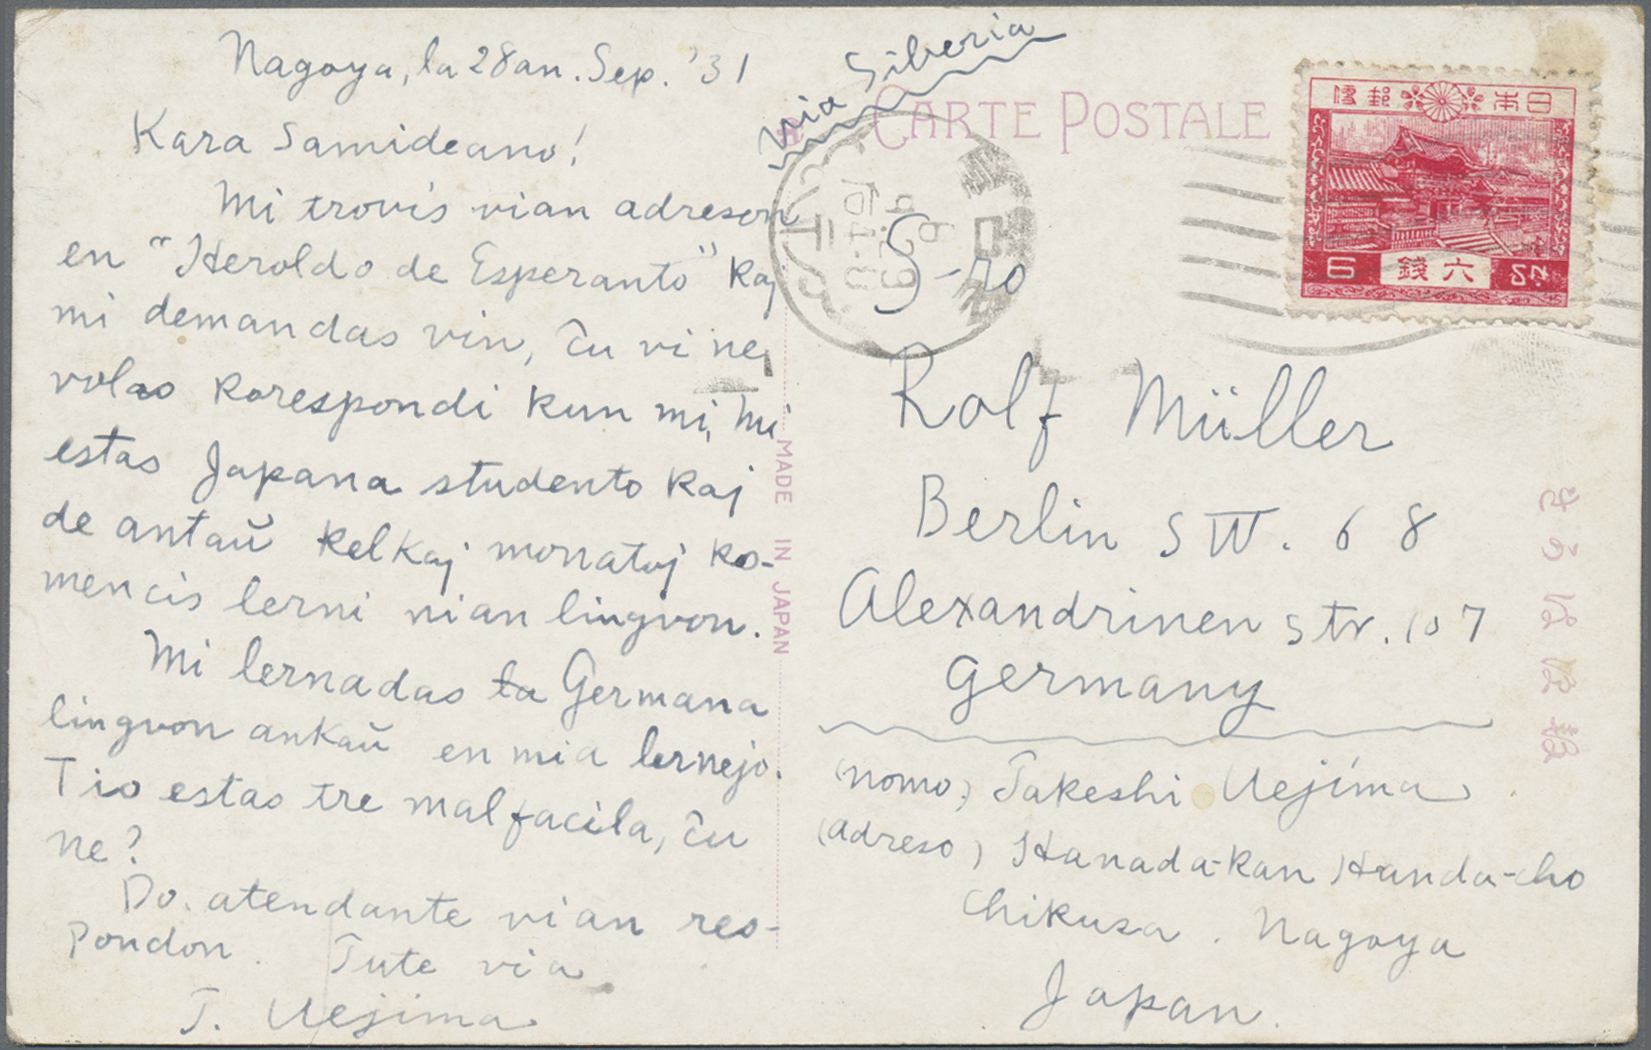 Nagoya, la 28an. Sep. '31
Kara Samideano!
Mi trovis vian adreson
en "Heroldo de Esperanto" kaj
mi demandas vin, ĉu vi ne
volas korespondi kun mi, mi
estas Japana studento kaj
de antaŭ kelkaj monatoj ko-
mencis lerni nian lingvon.
Mi lernadas la Germana
lingvon ankaŭ en mia lernejo.
Tio estas tre malfacila, ĉu
ne?
Do. atendante vian res-
pondon. Tute via
T. Uejima
via Siberia
CARTE POSTALE
日本郵便
6 六錢 SN.
S-ro
Rolf Müller
Berlin SW. 68
Alexandrinen str. 107
Germany
(nomo) Takeshi Uejima
(adreso) Hanada-kan Handa-cho
Chikusa. Nagoya
Japan.
MADE IN JAPAN